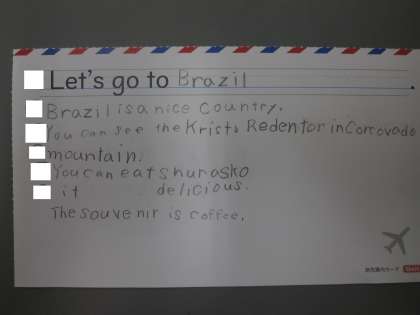 Let's go to Brazil.
Brazil is a nice country.
You can see the Kristo Redentor in Corcovado
mountain.
You can eat shurasko
it delicious.
The souvenir is coffee.